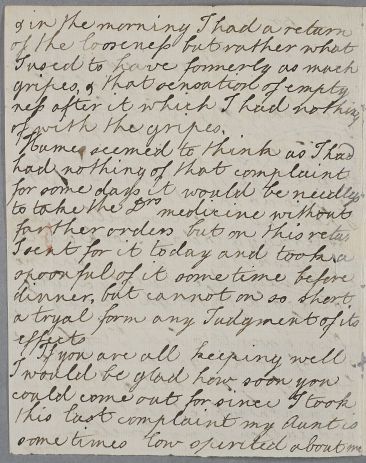 & in the morning I had a return
of the looseness but rather what
I used to have formerly as much
gripes, & that sensation of empty
ness after it which I had nothing
of with the gripes.
Hume seemed to think as I had
had nothing of that complaint
for some days it would be needless
to take the Drs medicine without
farther orders but on this retu
I sent for it today and took a
spoonful of it some time before
dinner, but cannot on so short
a tryal form any Judgment of its
effects
If you are all keeping well
I would be glad how soon you
could come out for since I took
this last complaint my Aunt is
some times low spirited about me